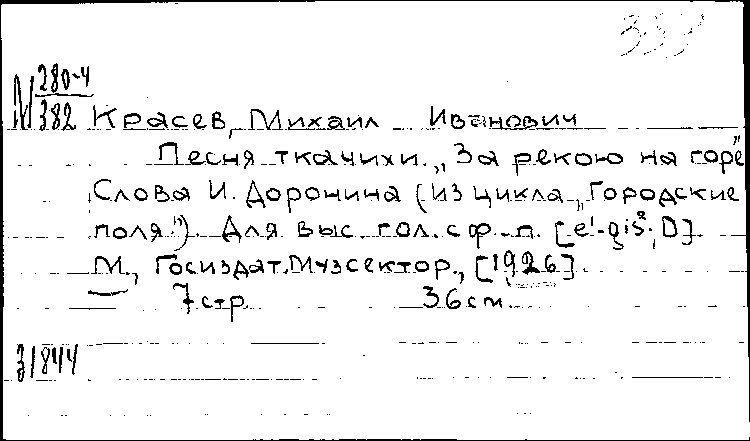 М 280-4
382 Красев, Михаил Иванович
Песня ткачихи. „За рекою на горе"
Слова И. Доронина (из цикла „Городские
поля"). Для выс. гол. с ф-п. [e¹-gis²; D].
М., Госиздат. Музсектор., [1926].
7 стр. 36 см.
31844